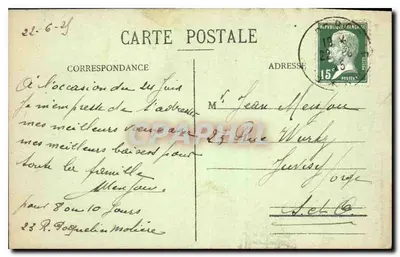 22-6-25
CARTE POSTALE
CORRESPONDANCE
ADRESSE
15c
POSTES
A l'occasion du 24 Juin
Je m'empresse de t'adresser
mes meilleurs
mes meilleurs baisers pour
toute la famille
pour 8 ou 10 jours
23 R. Poquelin Molière
Mr Jean
23 Rue Wurtz
Juvisy
s/ Orge
S. et O.
CPARAMA